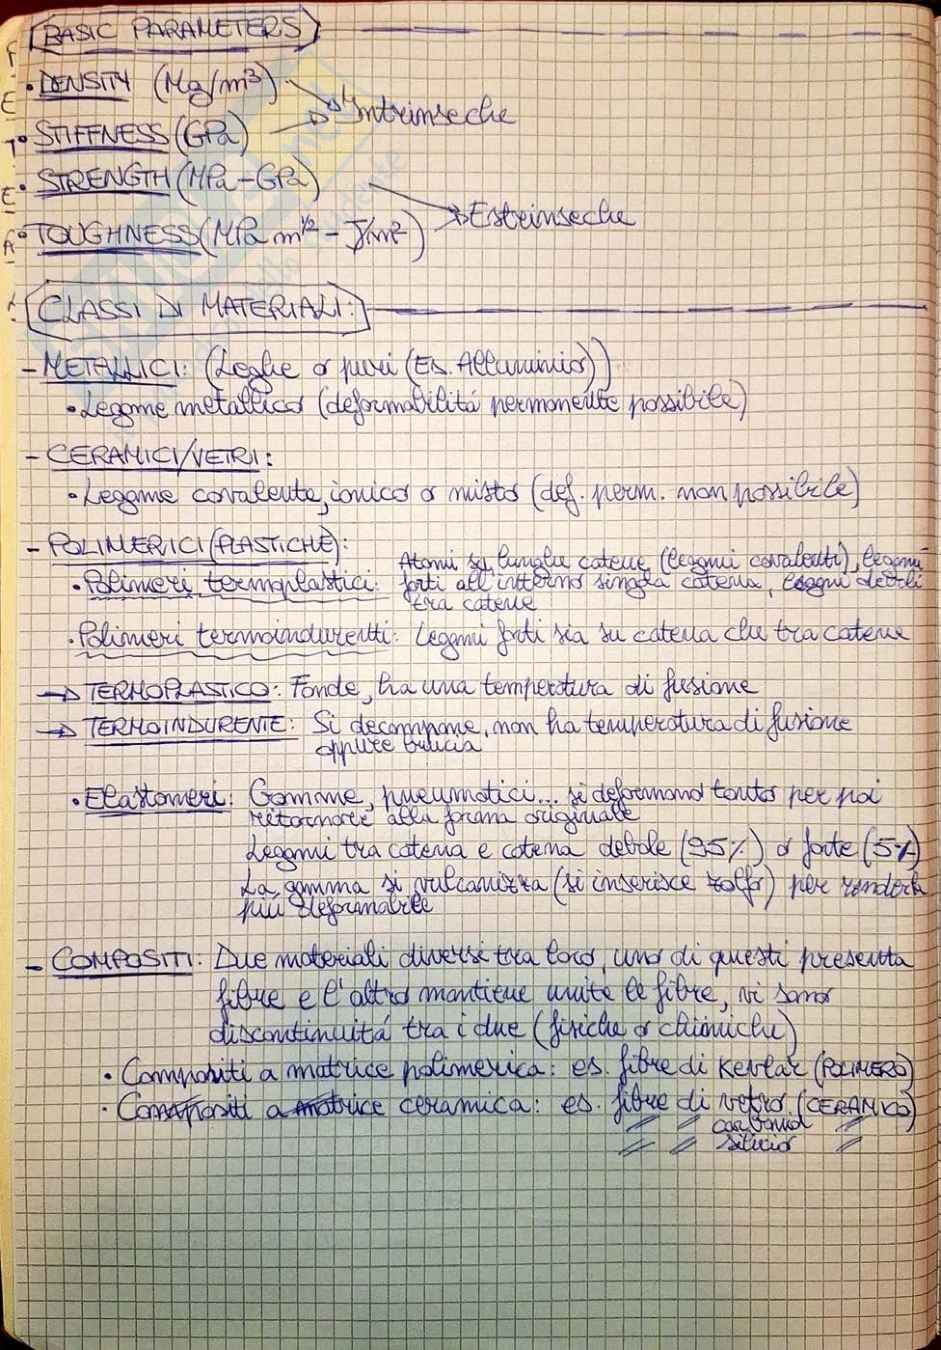 BASIC PARAMETERS
• DENSITY (Mg/m³)
Intrinseche
• STIFFNESS (GPa)
• STRENGTH (MPa-GPa)
Estrinseche
• TOUGHNESS (MPa m^1/2 - J/m²)
CLASSI DI MATERIALI:
- METALLICI: (Leghe o puri (Es. Alluminio))
• Legame metallico (deformabilitá permanente possibile)
- CERAMICI/VETRI:
• Legame covalente, ionico o misto (def. perm. non possibile)
- POLIMERICI (PLASTICHE):
• Polimeri termoplastici: Atomi su lunghe catene (legami covalenti), legami
forti all'interno singola catena, legami deboli
tra catene
• Polimeri termoindurenti: Legami forti sia su catena che tra catene
→ TERMOPLASTICO: Fonde, ha una temperatura di fusione
→ TERMOINDURENTE: Si decompone, non ha temperatura di fusione
oppure brucia
• Elastomeri: Gomme, pneumatici... si deformano tanto per poi
ritornare alla forma originale
Legami tra catena e catena debole (95%) o forte (5%)
La gomma si vulcanizza (si inserisce zolfo) per renderla
piú deformabile
- COMPOSITI: Due materiali diversi tra loro, uno di questi presenta
fibre e l'altro mantiene unite le fibre, vi sono
discontinuitá tra i due (fisiche o chimiche)
• Compositi a matrice polimerica: es. fibre di Kevlar (POLIMERO)
• Compositi a matrice ceramica: es. fibre di vetro (CERAMICO)
// // carbonio //
// // silicio //